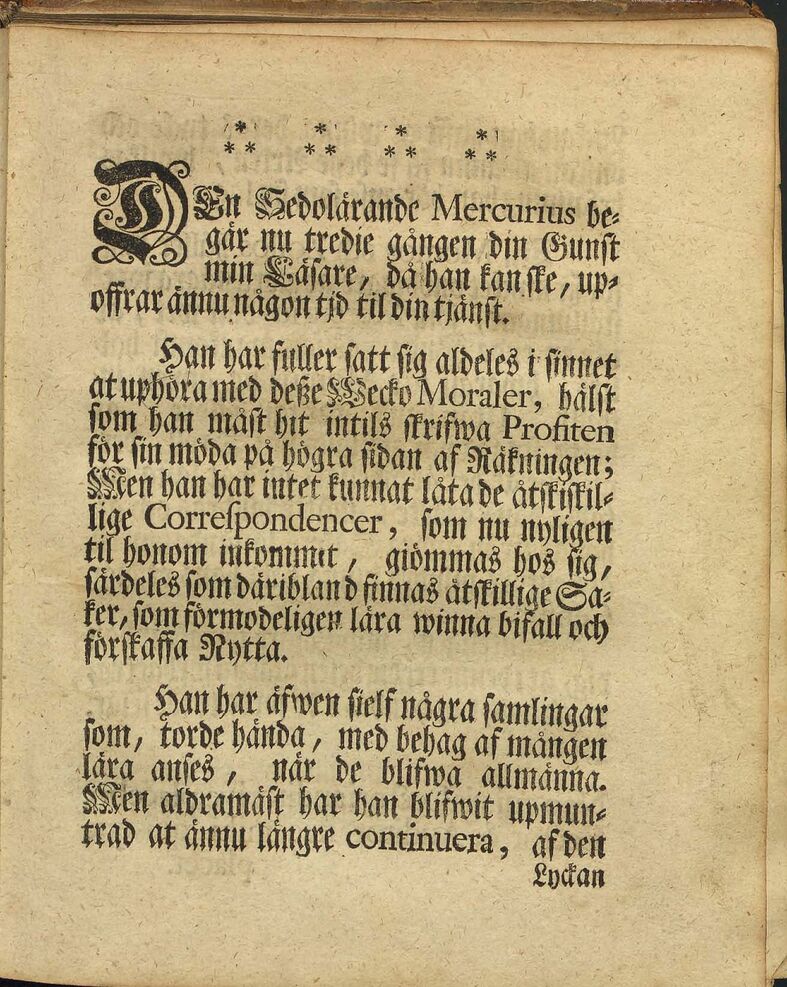 * * * *
** ** ** **
DEn Sedolärande Mercurius be-
gär nu tredie gången din Gunst
min Läsare, då han kan ske, up-
offrar ännu någon tjd til din tjänst.
Han har fuller satt sig aldeles i sinnet
at uphöra med deße Wecko Moraler, hälst
som han måst hit intils skrifwa Profiten
för sin möda på högra sidan af Räkningen;
Men han har intet kunnat låta de åtskiskil-
lige Correſpondencer, som nu nyligen
til honom inkommit, giömmas hos sig,
särdeles som däribland finnas åtskillige Sa-
ker, som förmodeligen lära winna bifall och
förskaffa Nytta.
Han har äfwen sielf några samlingar
som, torde hända, med behag af mången
lära anses, när de blifwa allmänna.
Men aldramäst har han blifwit upmun-
trad at ännu längre continuera, af den
Lyckan